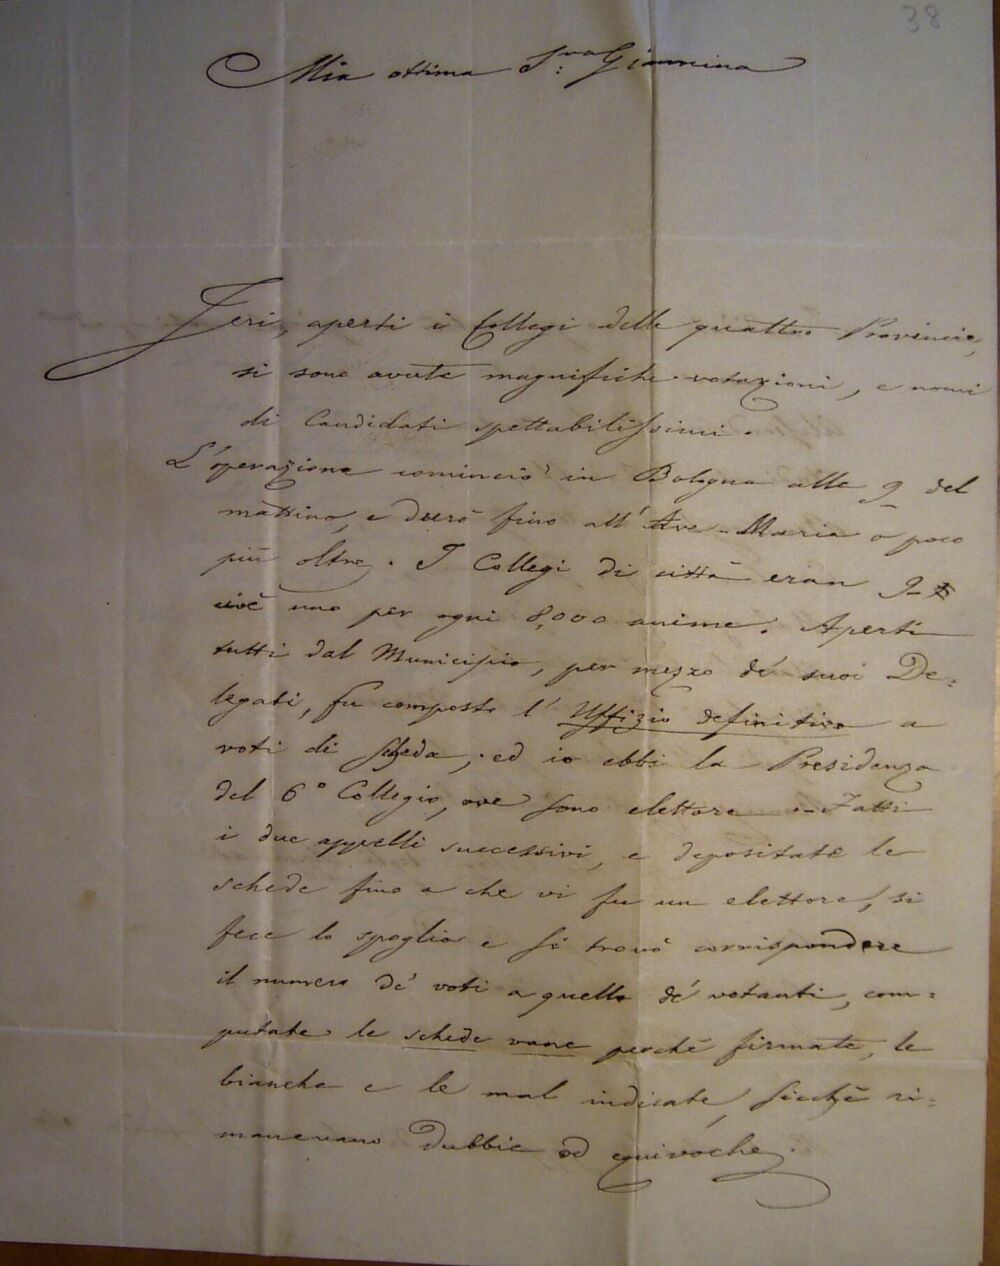 38
Mia ottima S.ra Giannina
Jeri, aperti i Collegi delle quattro Provincie,
si sono avute magnifiche votazioni, e nomi
di Candidati spettabilissimi.
L'operazione cominciò in Bologna alle 9 del
mattino, e durò fino all'Ave-Maria o poco
più oltre. I Collegi di città eran 9
cioè uno per ogni 8,000 anime. Aperti
tutti dal Municipio, per mezzo de' suoi De=
legati, fu composto l'Uffizio definitivo a
voti di scheda; ed io ebbi la Presidenza
del 6° Collegio, ove sono elettore. Fatti
i due appelli successivi, e depositate le
schede fino a che vi fu un elettore, si
fece lo spoglio e si trovò corrispondere
il numero de' voti a quello de' votanti, com=
putate le schede vane perché firmate, le
bianche e le mal indicate, sicché ri=
manevano dubbie od equivoche.